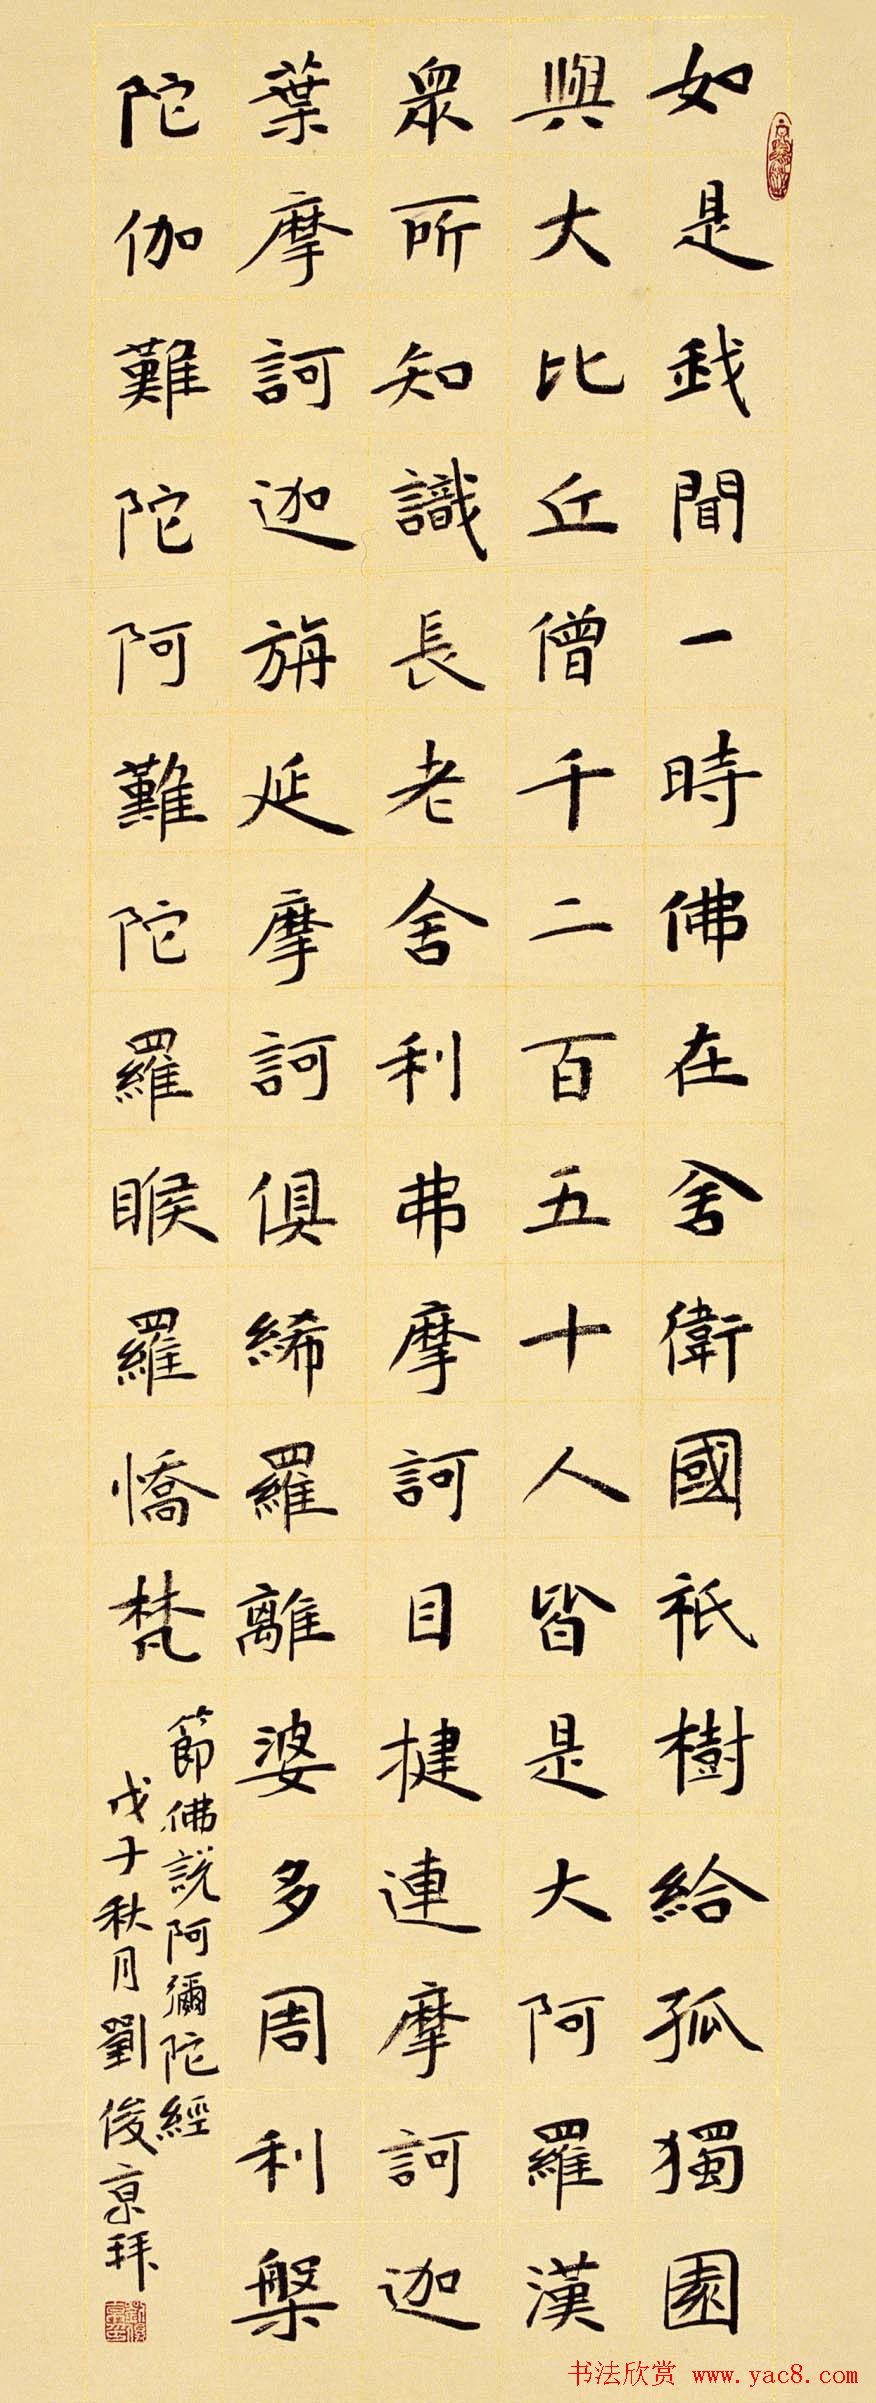 如是我聞一時佛在舍衛國祇樹給孤獨園
與大比丘僧千二百五十人皆是大阿羅漢
眾所知識長老舍利弗摩訶目揵連摩訶迦
葉摩訶迦旃延摩訶俱絺羅離婆多周利槃
陀伽難陀阿難陀羅睺羅憍梵
節佛說阿彌陀經
戊子秋月劉俊京拜
书法欣赏 www.yac8.com